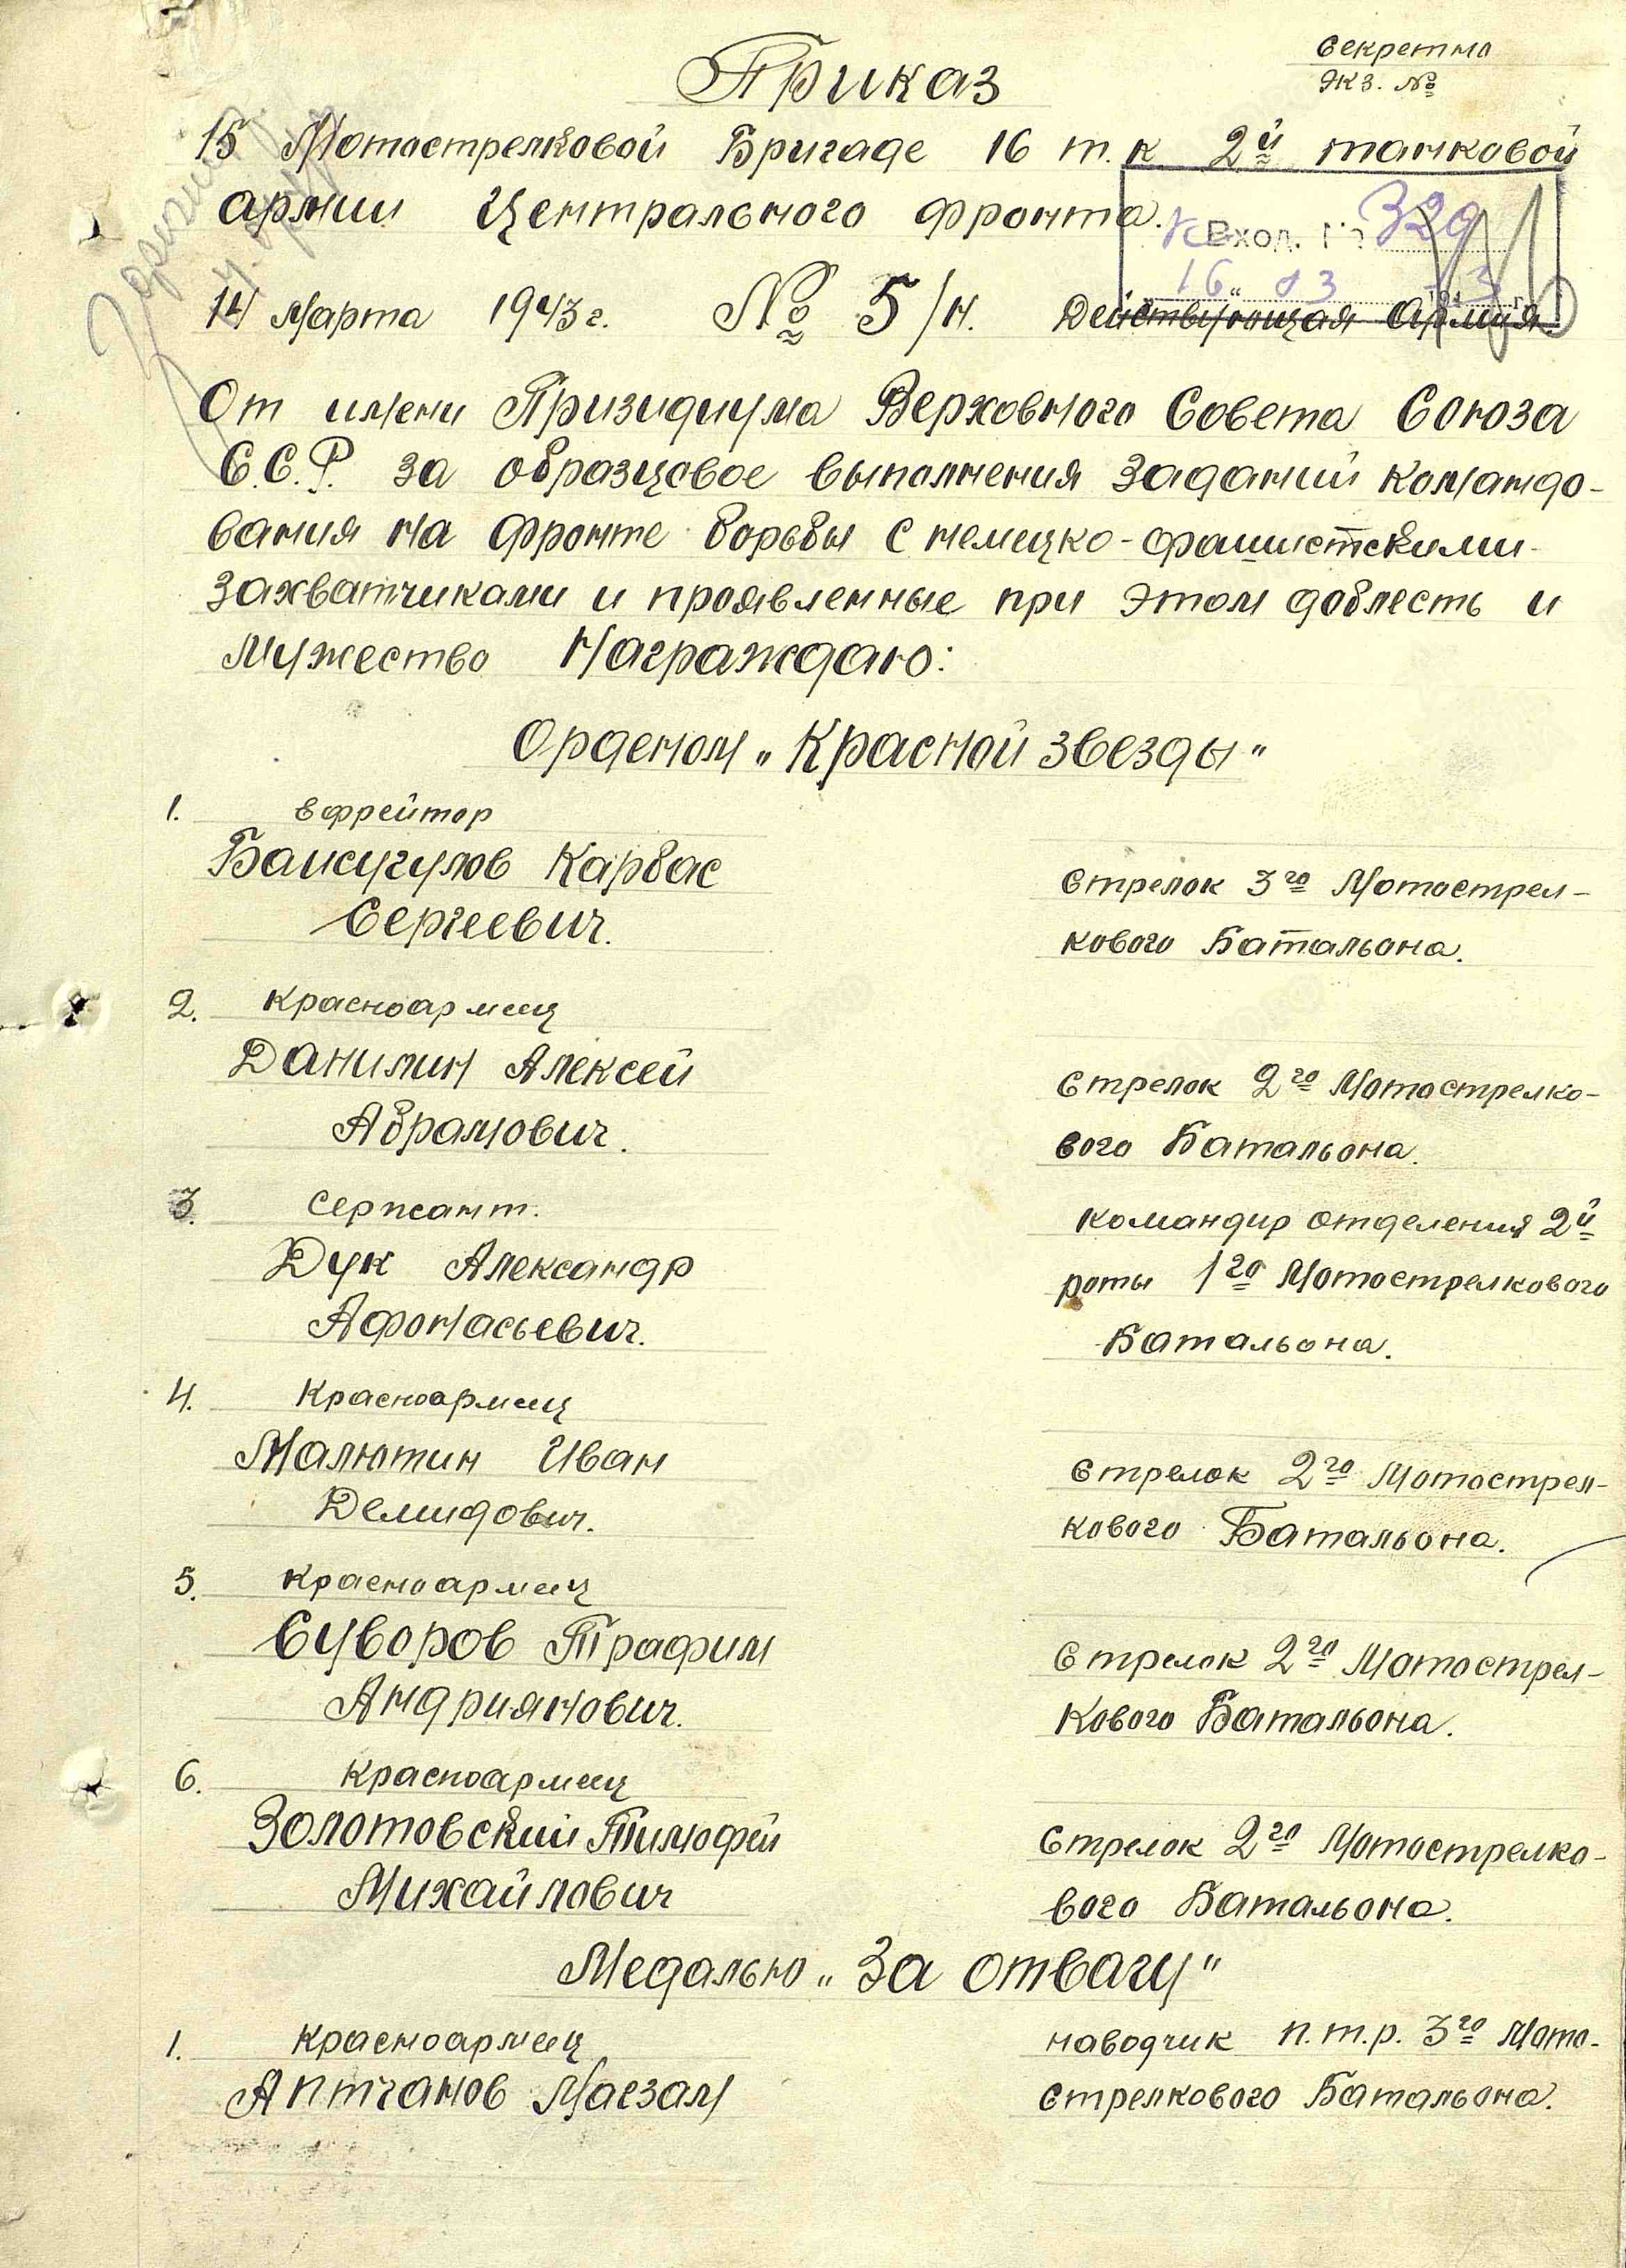 Секретно
Экз. №
Приказ
15 Мотострелковой Бригаде 16 т.к 2й танковой
армии Центрального фронта.
Вход. № 329
16 03 43
14 Марта 1943 г. № 5/н. Действующая Армия.
От имени Призидиума Верховного Совета Союза
С.С.Р. за образцовое выполнения заданий командо-
вания на фронте борьбы с немецко-фашистскими
захватчиками и проявленные при этом доблесть и
мужество Награждаю:
Орденом „Красной звезды"
1. Ефрейтор
Баисугулов Карбас
Сергеевич.
Стрелок 3го Мотострел-
кового Батальона.
2. Красноармеец
Данилин Алексей
Абрамович.
Стрелок 2го Мотострелко-
вого Батальона.
3. Сержант.
Дук Александр
Афонасьевич.
Командир отделения 2й
роты 1го Мотострелкового
Батальона.
4. Красноармеец
Малютин Иван
Демидович.
Стрелок 2го Мотострел-
кового Батальона.
5. Красноармеец
Суворов Трафим
Андриянович.
Стрелок 2го Мотострел-
кового Батальона.
6. Красноармеец
Золотовский Тимофей
Михайлович
Стрелок 2го Мотострелко-
вого Батальона.
Медалью „За отвагу"
1. Красноармеец
Аптчанов Магзам
наводчик п.т.р. 3го Мото-
стрелкового Батальона.